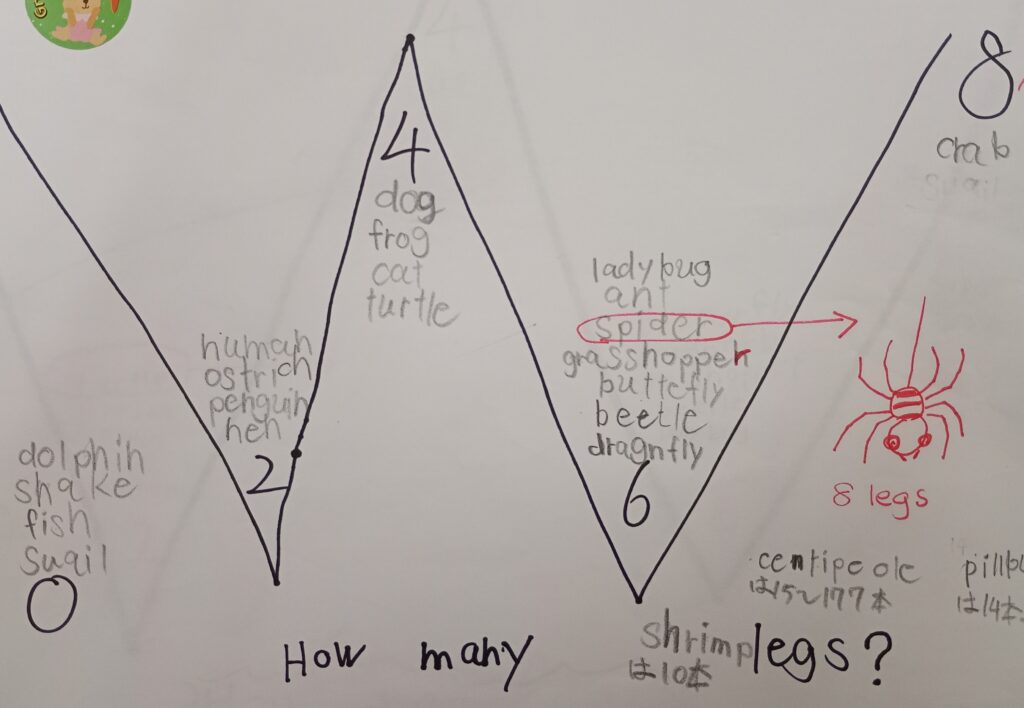 8
crab
4
dog
frog
cat
turtle
ladybug
ant
spider
grasshopper
butterfly
beetle
dragnfly
6
human
ostrich
penguin
hen
2
8 legs
dolphin
snake
fish
suail
0
centipede
は15~177本
は14本
shrimp
は10本
How many legs?